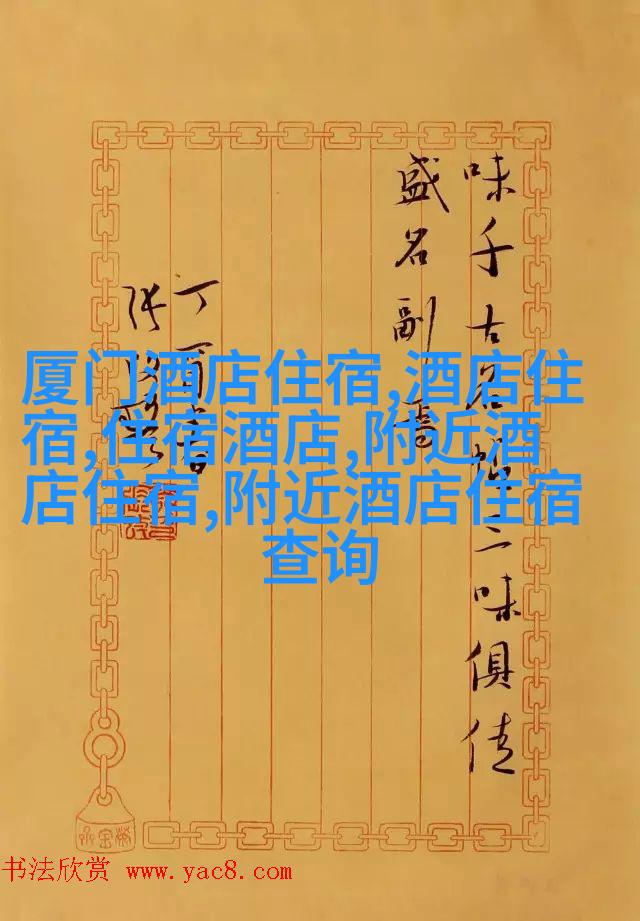 厦门酒店住宿,酒店住
宿,住宿酒店,附近酒
店住宿,附近酒店住宿
查询
味千古名二味俱佳
盛名副
丁酉
书法欣赏 www.yac8.com